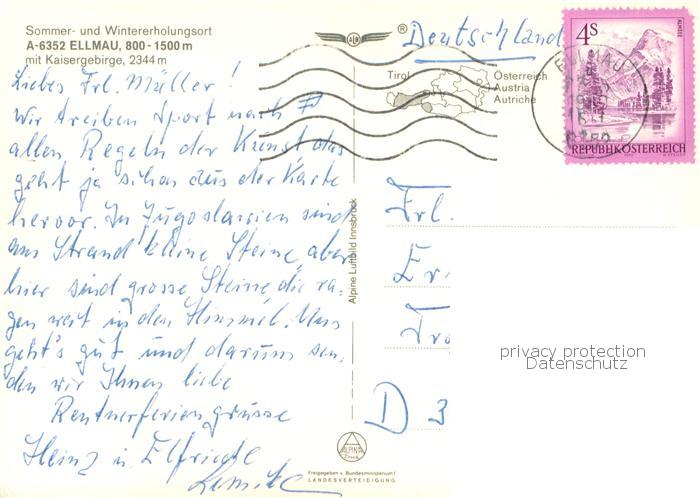 Sommer- und Wintererholungsort
A-6352 ELLMAU, 800 - 1500 m
mit Kaisergebirge, 2344 m
Liebes Frl. Müller!
Wir treiben Sport nach
allen Regeln der Kunst das
geht ja schon aus der Karte
hervor. In Jugoslawien sind
am Strand kleine Steine, aber
hier sind grosse Steine die ra-
gen weit in den Himmel. Uns
geht's gut und darum sen-
den wir Ihnen liebe
Rentnerferiengrüsse
Heinz u. Elfriede
ALM
®
Deutschland
Tirol
Österreich
Austria
Autriche
ELLMAU
4S
ALMSEE
REPUBLIK ÖSTERREICH
Alpine Luftbild Innsbruck
Frl.
Er
D 3
privacy protection
Datenschutz
ALPINA
Druck
Freigegeben v. Bundesministerium f.
LANDESVERTEIDIGUNG